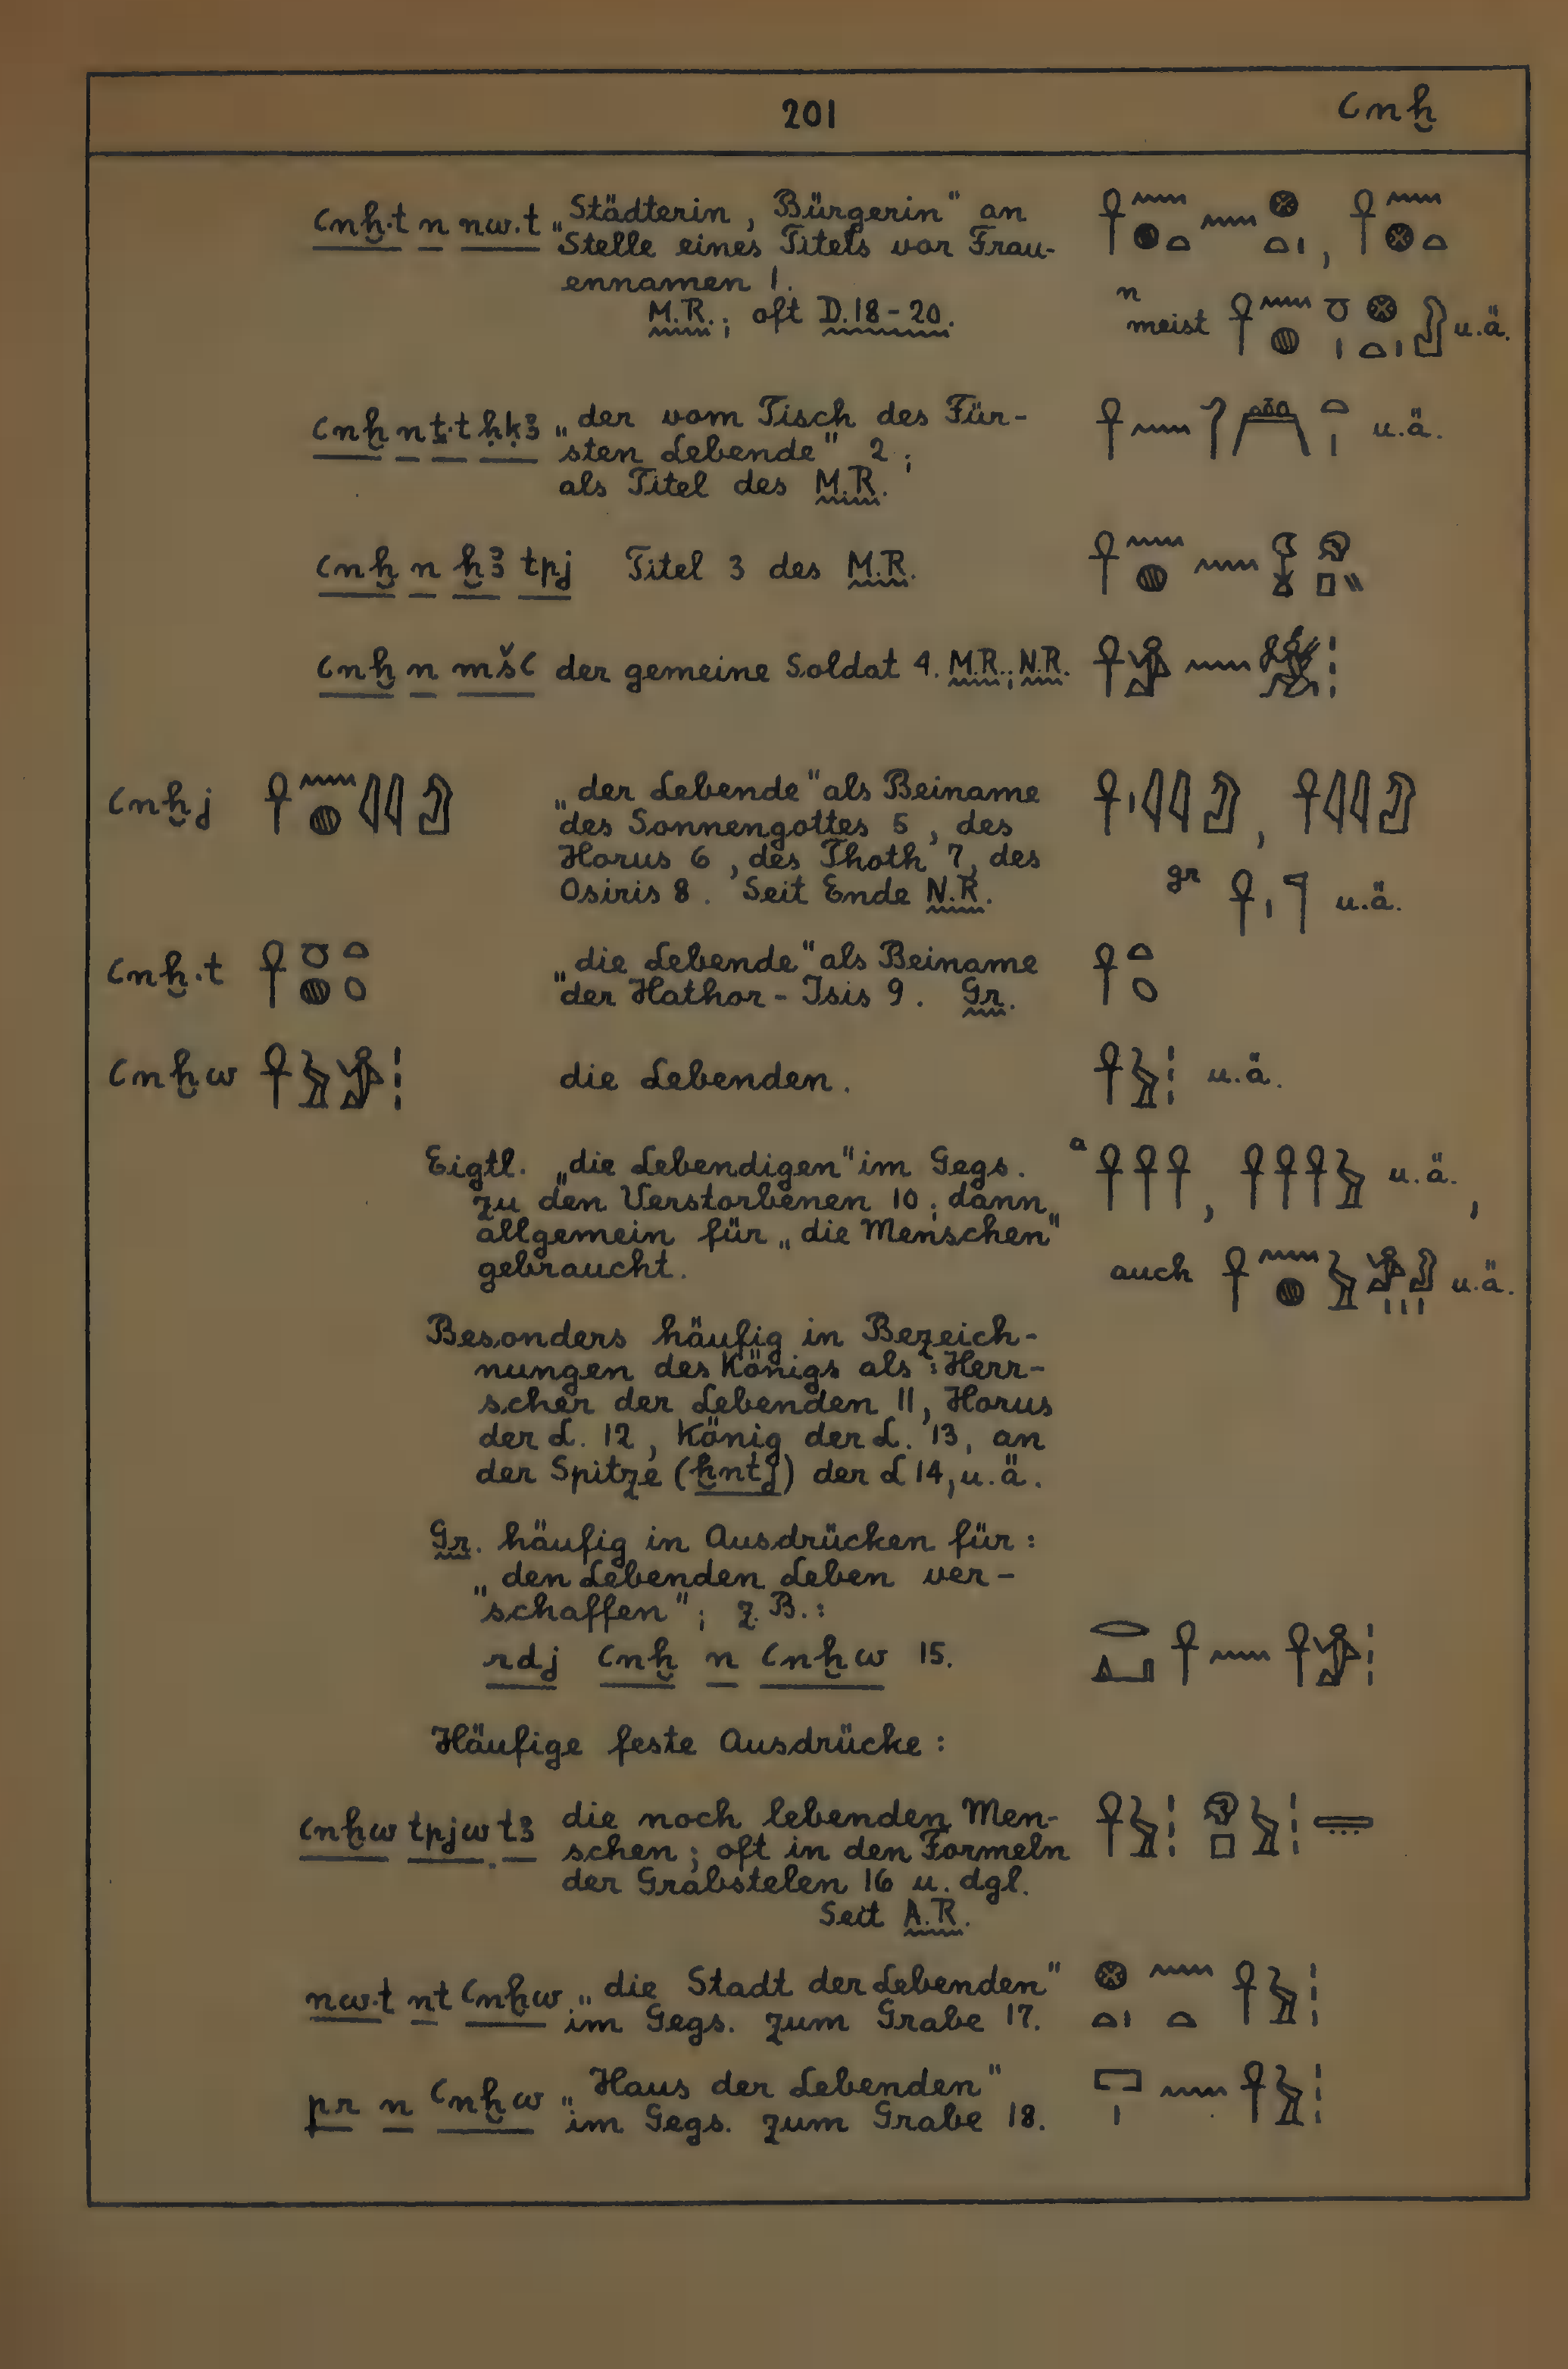 201 ꜥnḫ
ꜥnḫ.t n nw.t „Städterin, Bürgerin" an
Stelle eines Titels vor Frau-
ennamen 1.
M.R.; oft D.18-20.
n
meist u.ä.
ꜥnḫ n ṯ.t ḥḳꜣ „der vom Tisch des Für-
sten Lebende" 2;
als Titel des M.R.
u.ä.
ꜥnḫ n ḫꜣ tpj Titel 3 des M.R.
ꜥnḫ n mšꜥ der gemeine Soldat 4. M.R.; N.R.
ꜥnḫj „der Lebende" als Beiname
des Sonnengottes 5, des
Horus 6, des Thoth 7, des
Osiris 8. Seit Ende N.R.
gr u.ä.
ꜥnḫ.t „die Lebende" als Beiname
der Hathor-Isis 9. Gr.
ꜥnḫw die Lebenden. u.ä.
Eigtl. „die Lebendigen" im Gegs.
zu den Verstorbenen 10; dann
allgemein für „die Menschen"
gebraucht.
a u.ä.,
auch u.ä.
Besonders häufig in Bezeich-
nungen des Königs als: Herr-
scher der Lebenden 11, Horus
der L. 12, König der L. 13, an
der Spitze (ḫntj) der L 14, u.ä.
Gr. häufig in Ausdrücken für:
„den Lebenden Leben ver-
schaffen"; z.B.:
rdj ꜥnḫ n ꜥnḫw 15.
Häufige feste Ausdrücke:
ꜥnḫw tpjw tꜣ die noch lebenden Men-
schen; oft in den Formeln
der Grabstelen 16 u. dgl.
Seit A.R.
nw.t nt ꜥnḫw „die Stadt der Lebenden"
im Gegs. zum Grabe 17.
pr n ꜥnḫw „Haus der Lebenden"
im Gegs. zum Grabe 18.